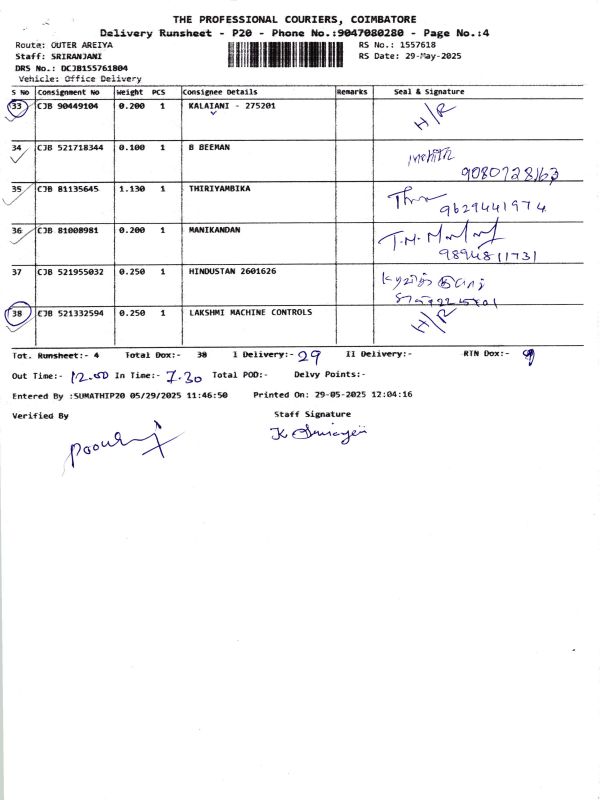 THE PROFESSIONAL COURIERS, COIMBATORE
Delivery Runsheet - P20 - Phone No.:9047080280 - Page No.:4
Route: OUTER AREIYA
RS No.: 1557618
Staff: SRIRANJANI
RS Date: 29-May-2025
DRS No.: DCJB155761804
Vehicle: Office Delivery
S No Consignment No Weight PCS Consignee Details Remarks Seal & Signature
33 CJB 90449104 0.200 1 KALAIANI - 275201 H/R
34 CJB 521718344 0.100 1 B BEEMAN
9080728163
35 CJB 81135645 1.130 1 THIRIYAMBIKA
9629441974
36 CJB 81008981 0.200 1 MANIKANDAN
9894811731
37 CJB 521955032 0.250 1 HINDUSTAN 2601626
38 CJB 521332594 0.250 1 LAKSHMI MACHINE CONTROLS H/R
Tot. Runsheet:- 4 Total Dox:- 38 I Delivery:- 29 II Delivery:- RTN Dox:- 9
Out Time:- 12.00 In Time:- 7.30 Total POD:- Delvy Points:-
Entered By :SUMATHIP20 05/29/2025 11:46:50 Printed On: 29-05-2025 12:04:16
Verified By Staff Signature